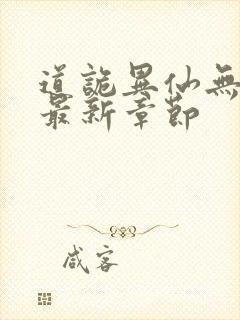 道詭異仙無
最新章節
咸客